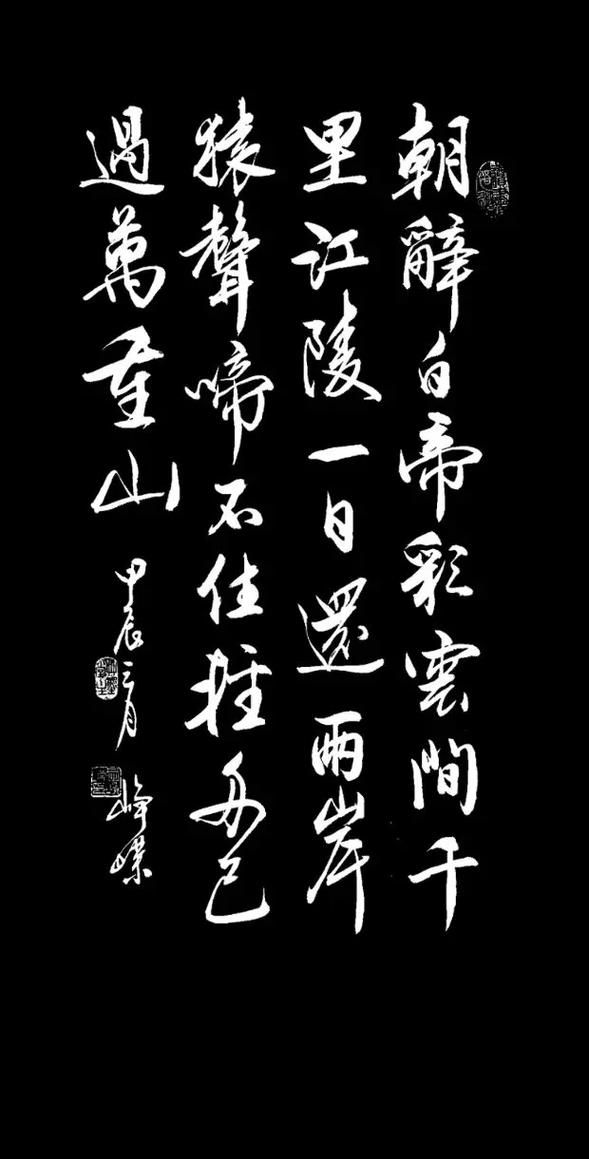 朝辭白帝彩雲間千
里江陵一日還兩岸
猿聲啼不住輕舟已
過萬重山
甲辰三月
峰嶸